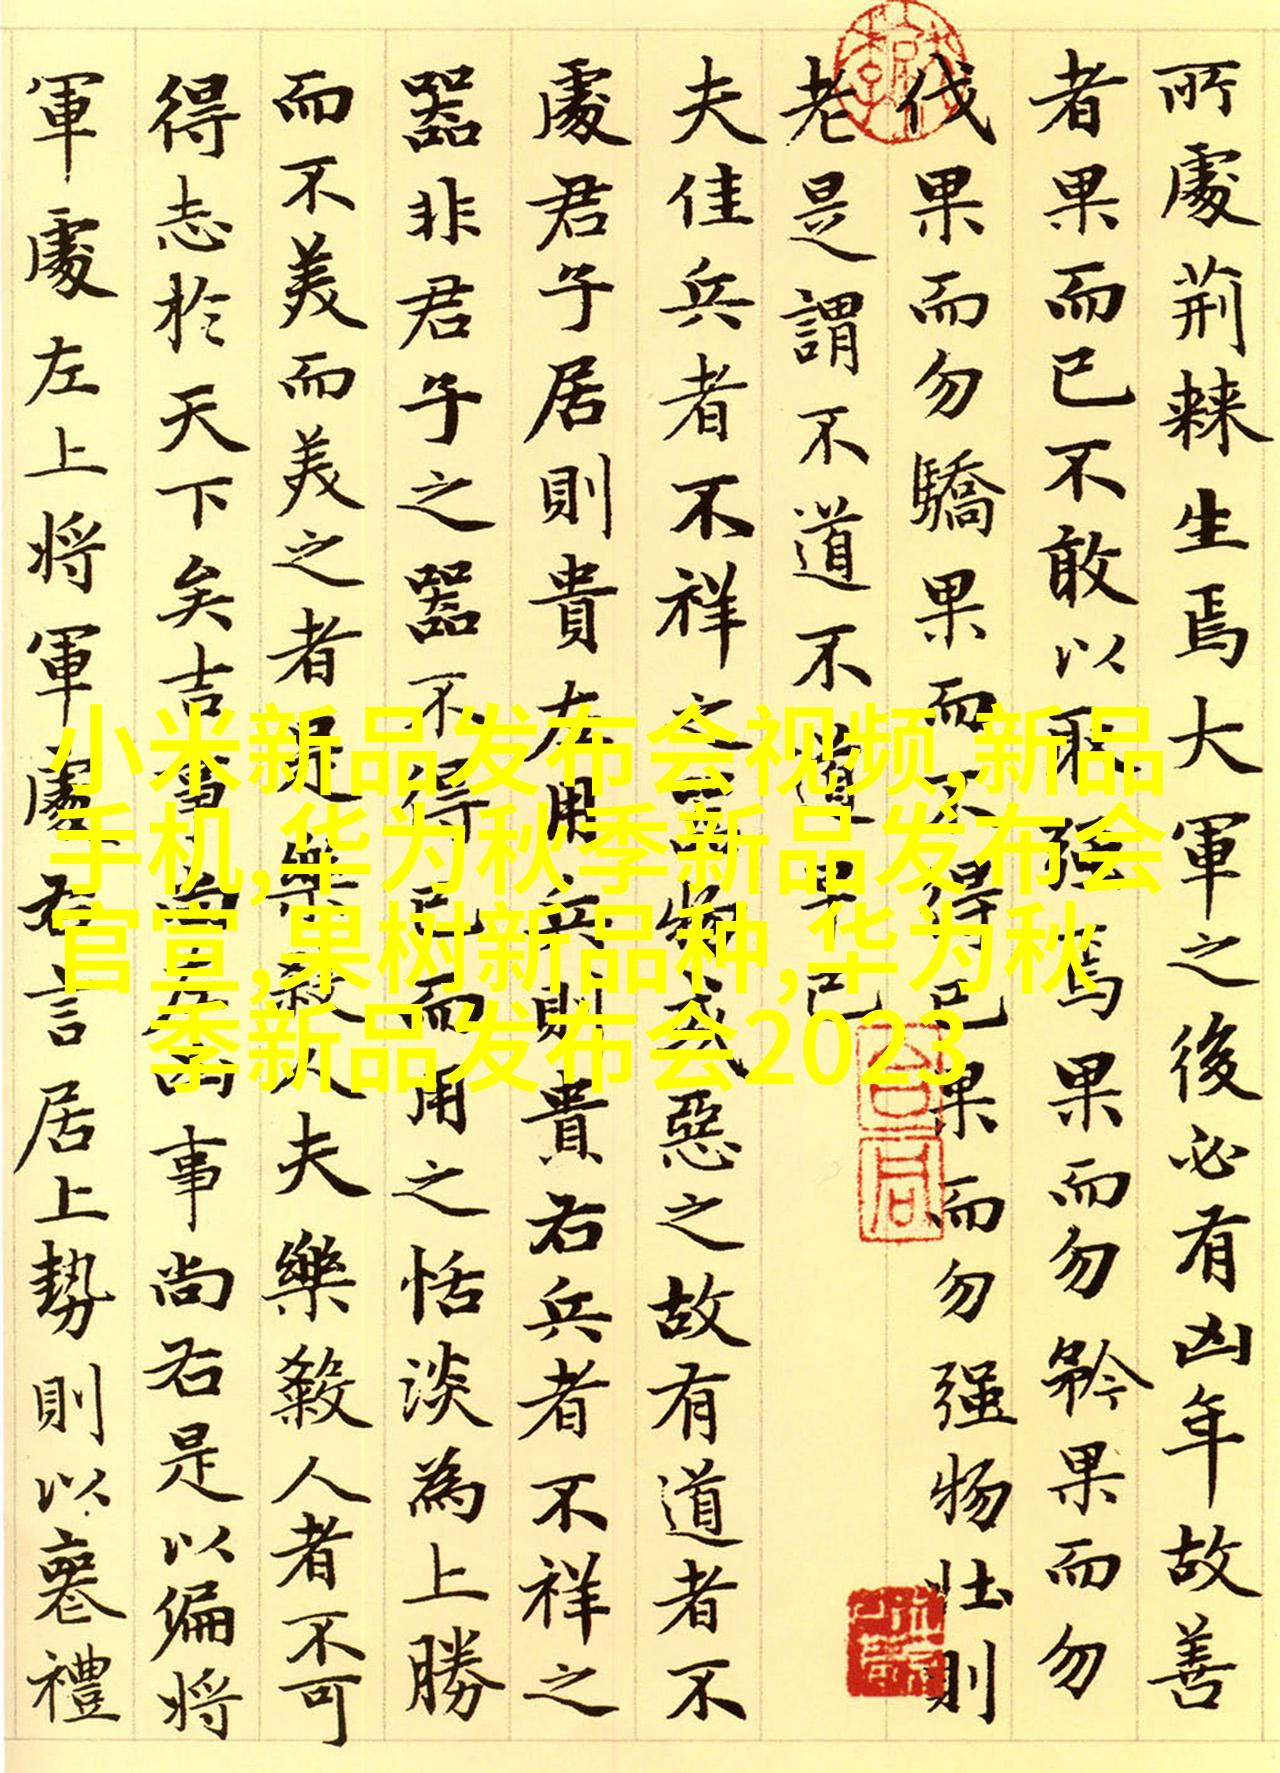 所處荊棘生焉大軍之後必有凶年故善
者果而已不敢以取强焉果而勿矜果而勿
伐果而勿驕果而不得已果而勿强物壮則
老是謂不道不道早已
夫佳兵者不祥之器物或惡之故有道者不
處君子居則貴左用兵則貴右兵者不祥之
器非君子之器不得已而用之恬淡為上勝
而不美而美之者是樂殺人夫樂殺人者不可
得志於天下矣吉事尚左凶事尚右是以偏將
軍處左上將軍處右言居上勢則以喪禮
小米新品发布会视频,新品
手机,华为秋季新品发布会
官宣,果树新品种,华为秋
季新品发布会2023